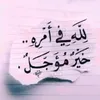 لِلَّهِ فِي أَمْرِهِ ..
خَيْرٌ مُؤَجَّلٌ .